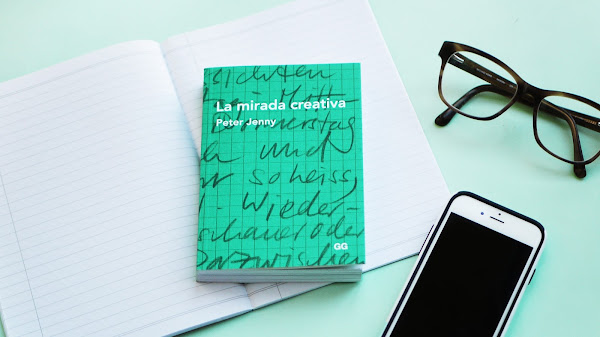 sichten
La mirada creativa
Peter Jenny
Donnerstag
und
so heiss,
Wieder-
schauer oder
GG